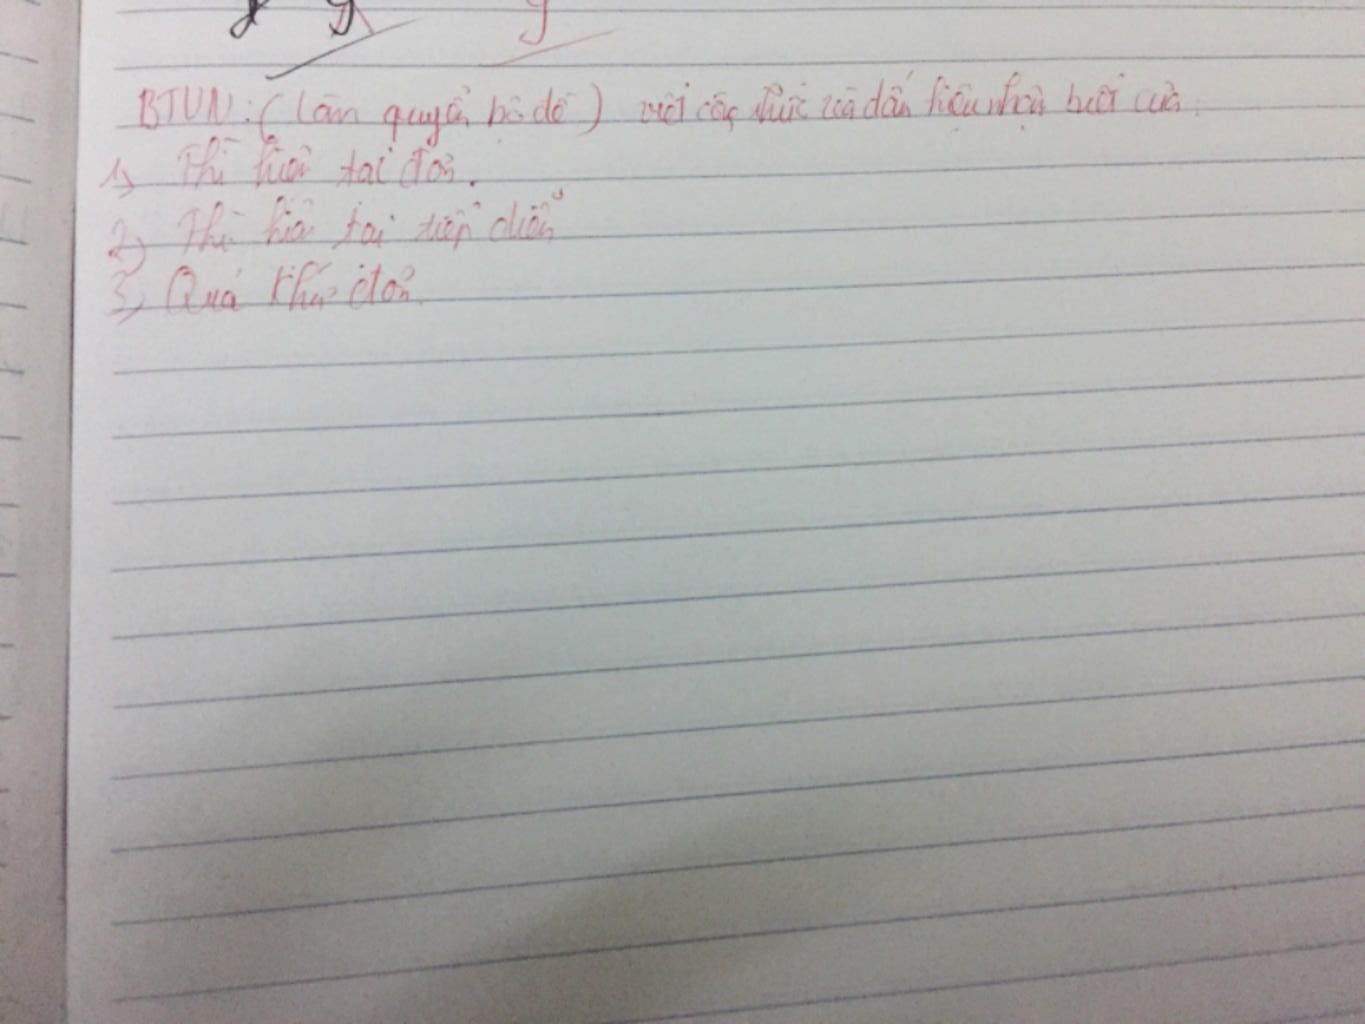 y y y
BTVN: (làm quyển bìa đỏ) viết công thức và dấu hiệu nhận biết của
1) Thì hiện tại đơn.
2) Thì hiện tại tiếp diễn
3) Quá khứ đơn.